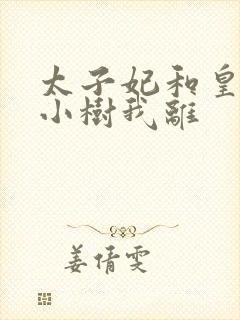 太子妃和皇
小樹我離
姜倩雯